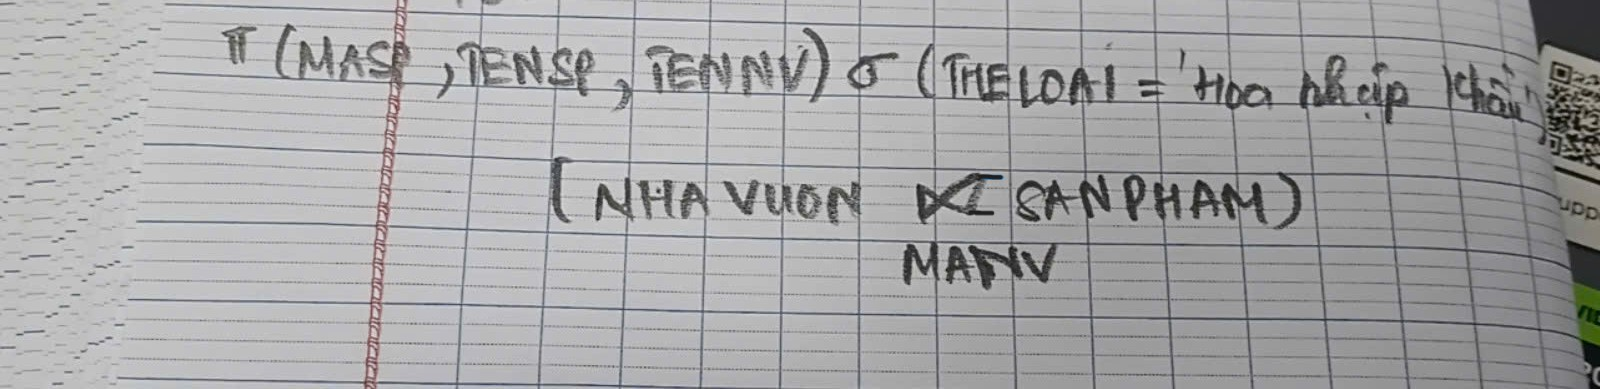 π (MASP, TENSP, TENNV) σ (THELOAI = 'Hoa nhập khẩu'
(NHAVUON ⋈ SANPHAM)
MANV